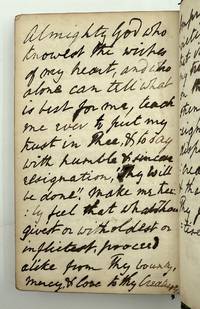 Almighty God who
knowest the wishes
of my heart, and who
alone can tell what
is best for me, teach
me ever to put my
trust in Thee, & to day
with humble & sincere
resignation, "Thy will
be done". Make me tru
:ly feel that what Thou
givest or witholdest or
inflictest, proceed
alike from Thy bounty,
mercy, & love to thy creatures